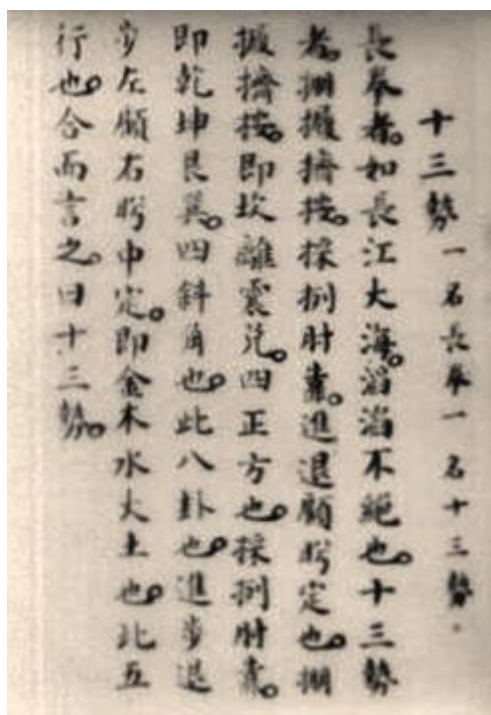 十三勢 一名長拳一名十三勢。
長拳者。如長江大海。滔滔不絕也。十三勢
者。掤攦擠按。採挒肘靠。進退顧盼定也。掤
攦擠按。即坎離震兌。四正方也。採挒肘靠。
即乾坤艮巽。四斜角也。此八卦也。進步退
步左顧右盼中定。即金木水火土也。此五
行也。合而言之。曰十三勢。